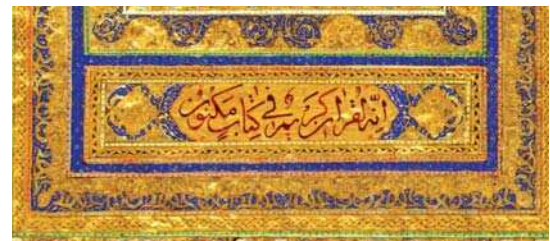 إنه لقرآن كريم في كتاب مكنون